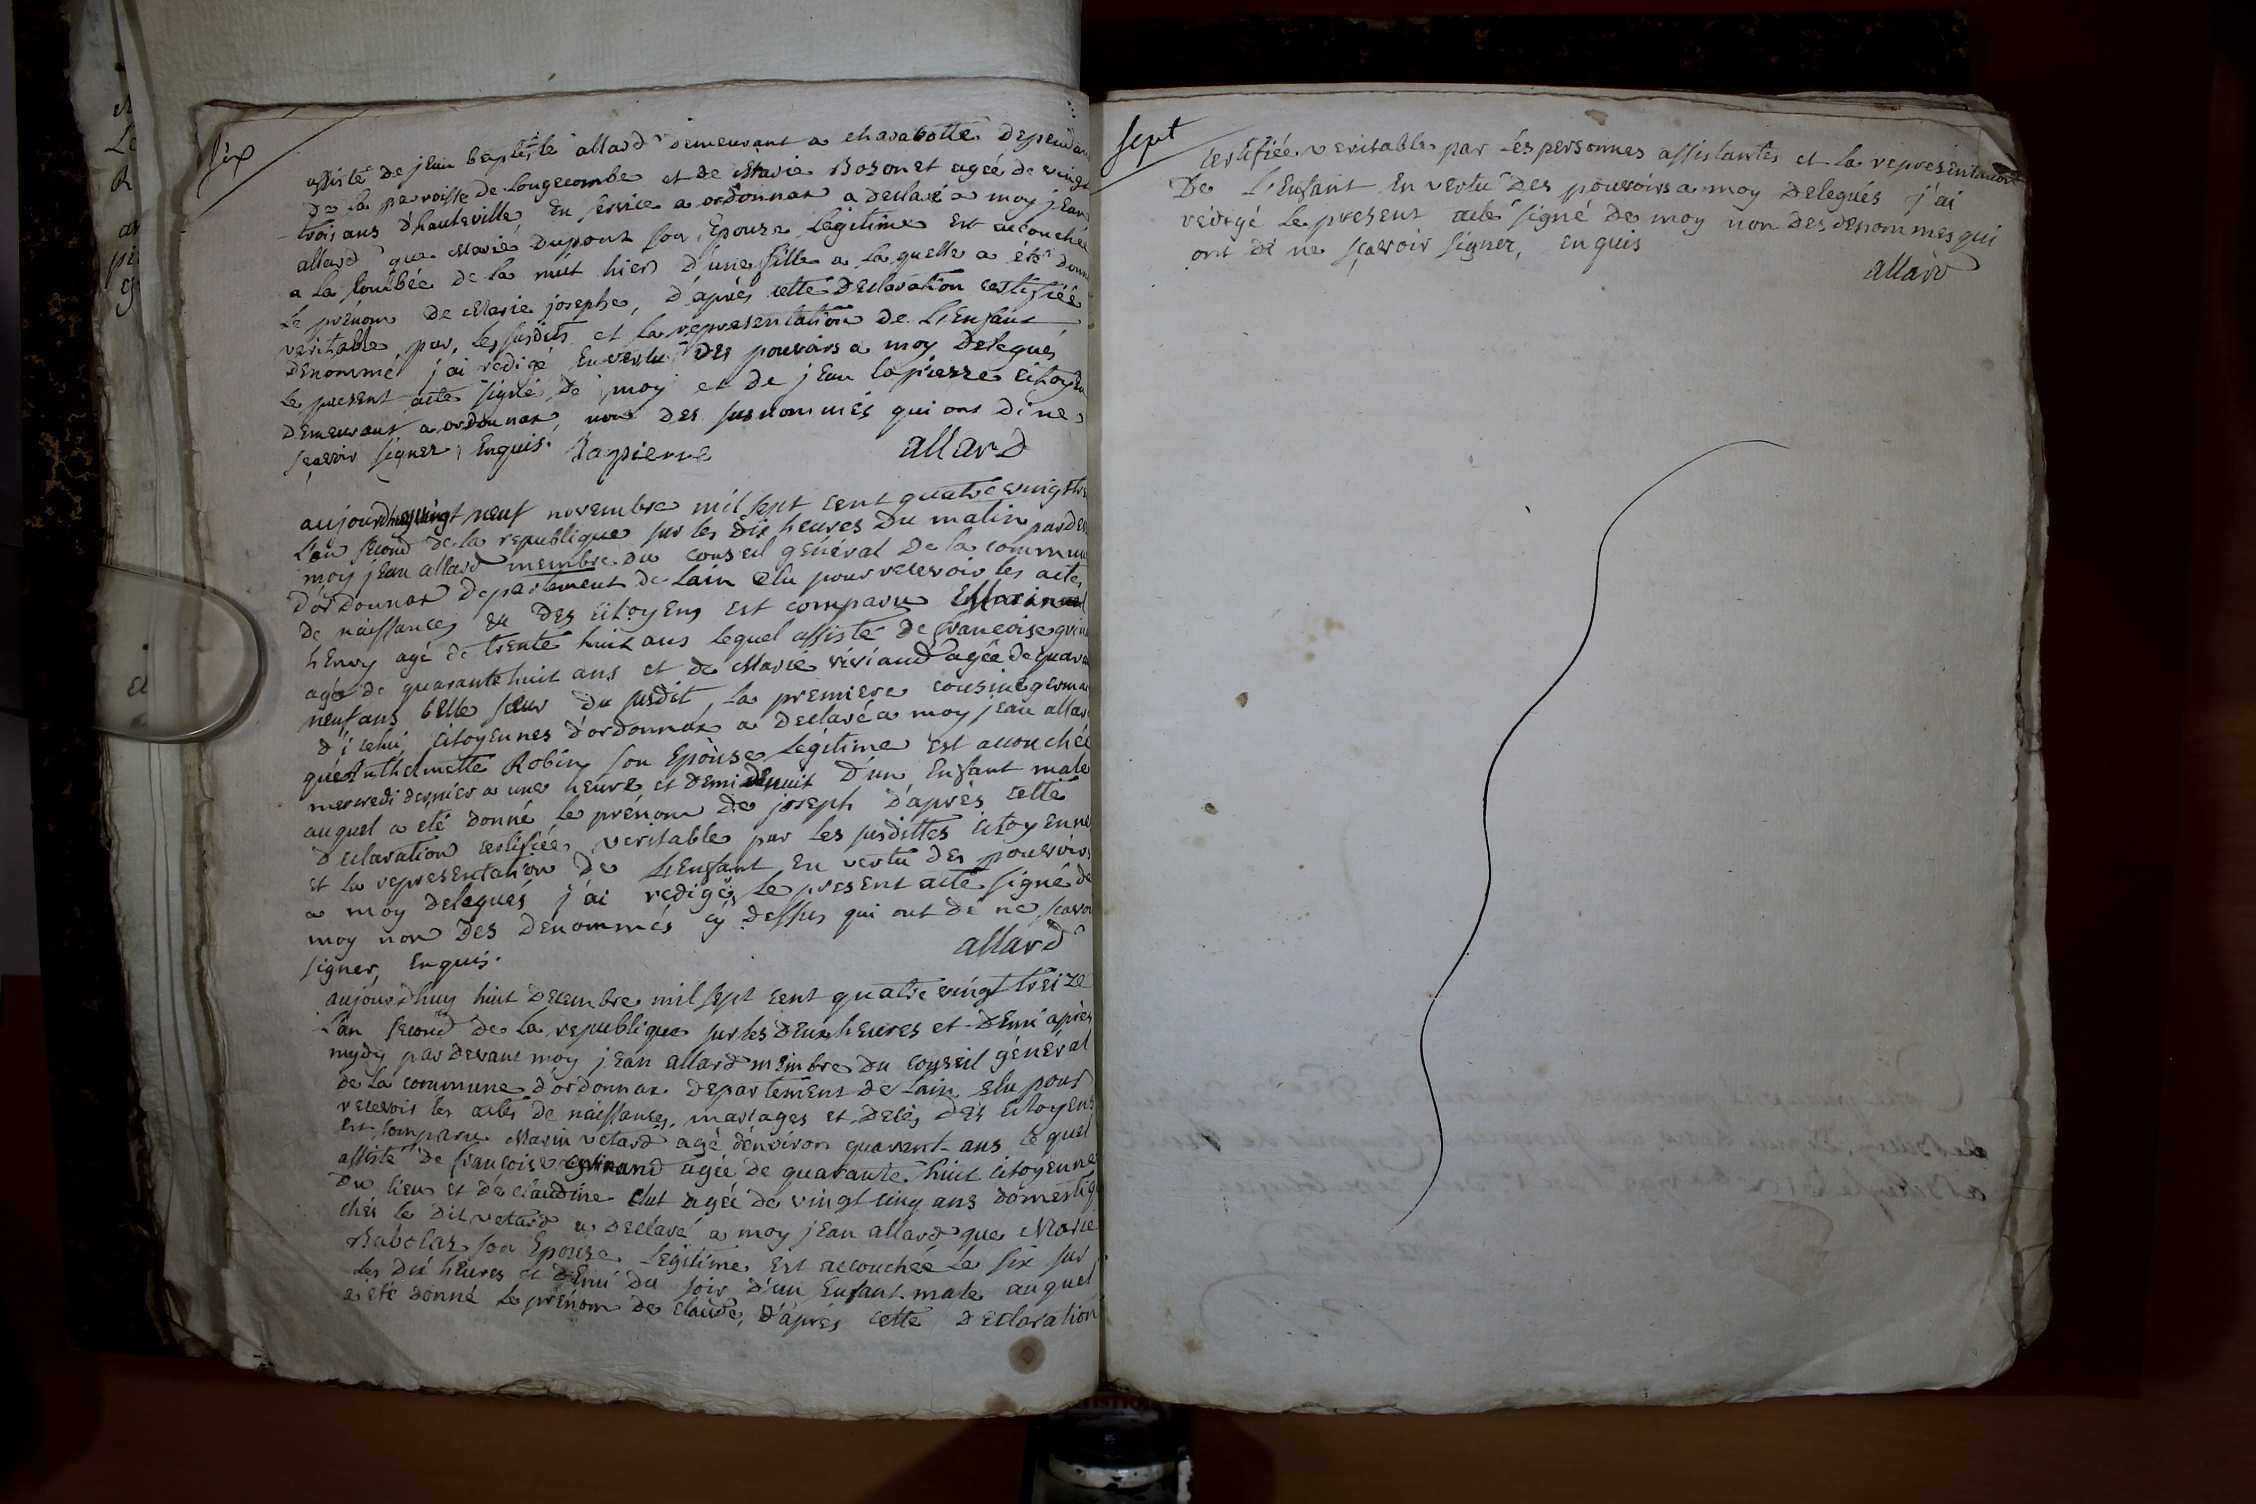 six
assisté de jean baptiste allard demeurant a charabotte dependan
de la paroisse de Longecombe et de Marie Bozonet agée de vingt
trois ans d'hauteville en service a ordonnax a declaré a moy jean
allard que Marie Dupont son Epouse Légitime Est accouchée
a la tombée de la nuit hier d'une fille a la quelle a été donné
le prénom de Marie josephe, d'après cette declaration certifiée
veritable par les susdits et la representation de L'Enfant
denommé j'ai redigé En vertu des pouvoirs a moy delegués
le present acte signé de moy et de jean lapierre citoyen
demeurant a ordonnax, non des susnommés qui ont di ne
sçavoir signer, Enquis. Lapierre
allard
aujourdhuy vingt neuf novembre mil sept cent quatre vingt tre
l'an second de la republique sur les dix heures du matin pardev
moy jean allard membre du conseil général de la commun
d'ordonnax departement de Lain elu pour recevoir les actes
de naissances des citoyens est comparu Marin
henry agé de trente huit ans lequel assisté de francoise
agée de quarante huit ans et de Marie viviand agée de quara
neuf ans belle sœur du susdit, la premiere cousine germa
d'icelui, citoyennes d'ordonnax a declaré a moy jean allar
que Anthelmette Robin son Epouse Légitime est accouchée
mercredi dernier a une heure et demi de nuit d'un Enfant male
auquel a été donné le prénom de joseph d'après cette
declaration certifiée veritable par les susdittes citoyenne
et la representation de L'Enfant en vertu des pouvoirs
a moy delegués j'ai redigé le present acte signé de
moy non des denommés cy dessus qui ont di ne scavoi
signer, Enquis.
allard
aujourdhuy huit decembre mil sept cent quatre vingt treize
l'an second de la republique sur les deux heures et demi après
mydy pardevant moy jean allard membre du conseil général
de la commune d'ordonnax departement de Lain elu pour
recevoir les actes de naissances, mariages et décès des citoyens
est comparu Marin vetard agé d'environ quarant ans lequel
assisté de françoise agée de quarante huit citoyenne
du lieu et de claudine agée de vingt cinq ans domestiq
chés le dit vetard a declaré a moy jean allard que Marie
Babolaz son Epouse Légitime est accouchée le six sur
les dix heures et demi du soir d'un Enfant male auquel
a été donné le prénom de claude, d'après cette declaration
sept
certifiée veritable par les personnes assistantes et la representation
De L'Enfant En vertu des pouvoirs a moy delegués j'ai
redigé le present acte signé de moy non des denommes qui
ont di ne sçavoir signer, enquis
allard